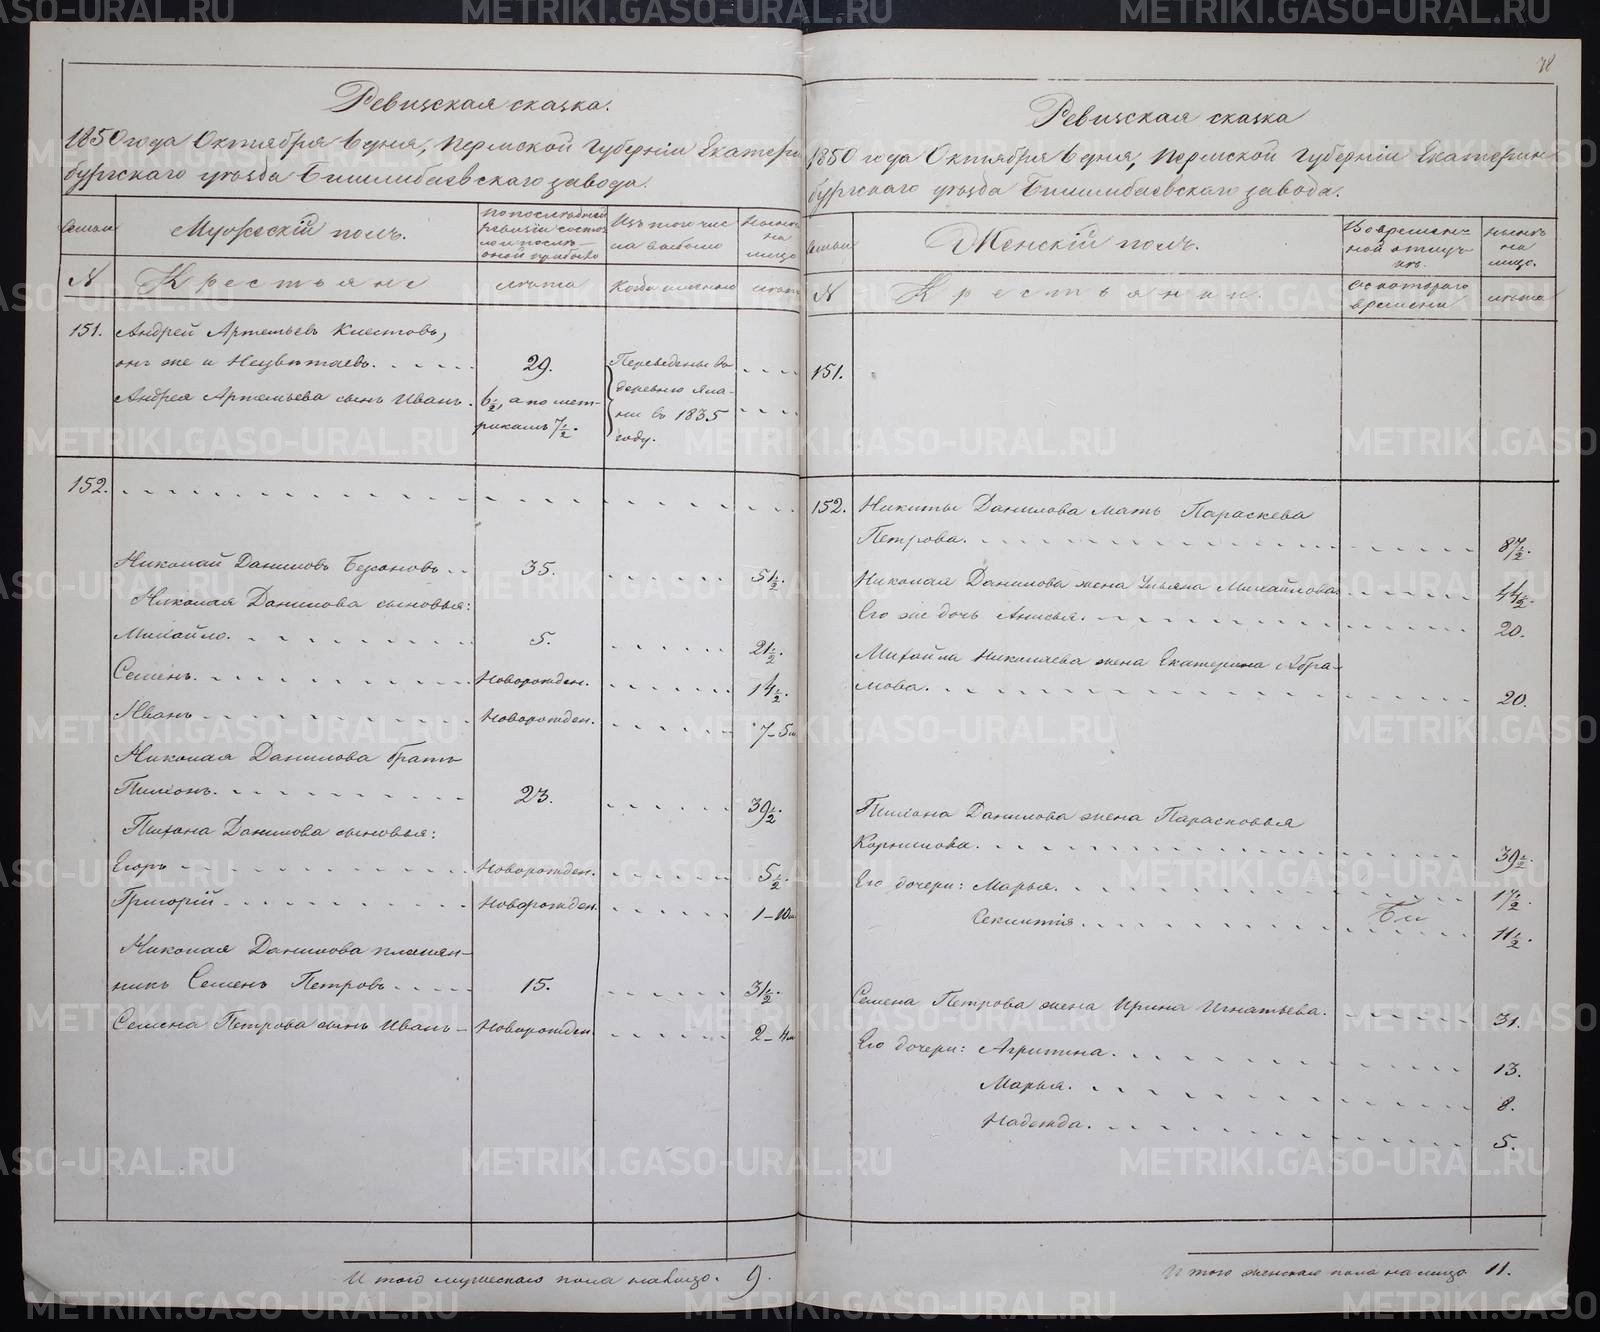 78
Ревизская сказка.
1850 года Октября 6 дня, Пермской Губерніи Екатерин
бургскаго уѣзда Бишлибаевскаго завода.
Семьи
Мужескій полъ.
По послѣдней
ревизіи состо
яло и послѣ
оной прибыло
Изъ того чис
ла выбыло
Нынѣ
на
лицо
№
Крестьяне
лѣта
Когда именно
лѣта
151. Андрей Артемьевъ Клестовъ,
онъ же и Нецвѣтаевъ. 29.
Андрея Артемьева сынъ Иванъ. 6½, а по мет-
рикамъ 7½.
Переведены въ
деревню
въ 1835
году.
152.
Николай Даниловъ 35. 51½.
Николая Данилова сыновья:
Михайло. 5. 21½.
Семенъ. Новорожден. 14½.
Иванъ Новорожден. 7-5м
Николая Данилова братъ
Пименъ. 23. 39½.
Пимена Данилова сыновья:
Егоръ Новорожден. 5½.
Григорій Новорожден. 1-10м
Николая Данилова племян-
никъ Семенъ Петровъ 15. 31½.
Семена Петрова сынъ Иванъ Новорожден. 2-4м
Итого мужескаго пола налицо. 9.
Ревизская сказка
1850 года Октября 6 дня, Пермской Губерніи Екатерин
бургскаго уѣзда Бишлибаевскаго завода.
Семьи
Женскій полъ.
Во времен-
ной отлуч-
кѣ.
Нынѣ
на
лицо.
№
Крестьянки.
Съ котораго
времени
лѣта
151.
152. Никиты Данилова мать Параскева
Петрова. 87½.
Николая Данилова жена Ульяна Михайлова 44½.
Его же дочь Анисья. 20.
Михайла Николаева жена Екатерина Абра-
мова. 20.
Пимена Данилова жена Парасковья
Корнилова. 39½.
Его дочери: Марья. 17½.
Секлитія. 11½.
Семена Петрова жена Ирина Игнатьева. 31.
Его дочери: Агрипина. 13.
Марья. 8.
Надежда. 5.
Итого женскаго пола на лицо 11.
METRIKI.GASO-URAL.RU